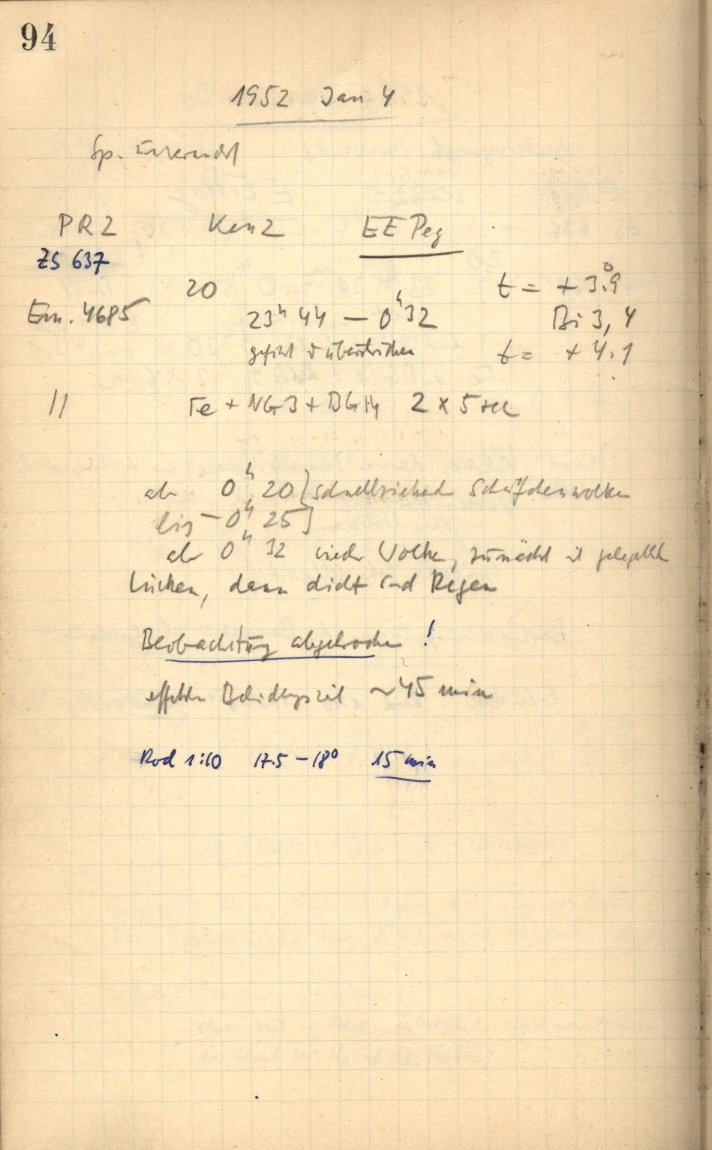 94
1952 Jan 4
Sp. unverändert
PR2 Ken2 EE Peg
ZS 637
20 t = + 3°.9
Em. 4685 23ʰ 44 — 0ʰ 32 Bi 3, 4
geführt überstrichen t = + 4.1
11 Fe + NG3 + BG14 2 × 5 sec
ab 0ʰ 20 } schnellziehend Schäfchenwolken
bis – 0ʰ 25 }
ab 0ʰ 32 wieder Wolken, zunächst mit gelegentl
Lücken, dann dicht und Regen
Beobachtung abgebrochen !
effektive Belichtungszeit ~ 45 min
Rod 1:10 17.5 – 18° 15 min